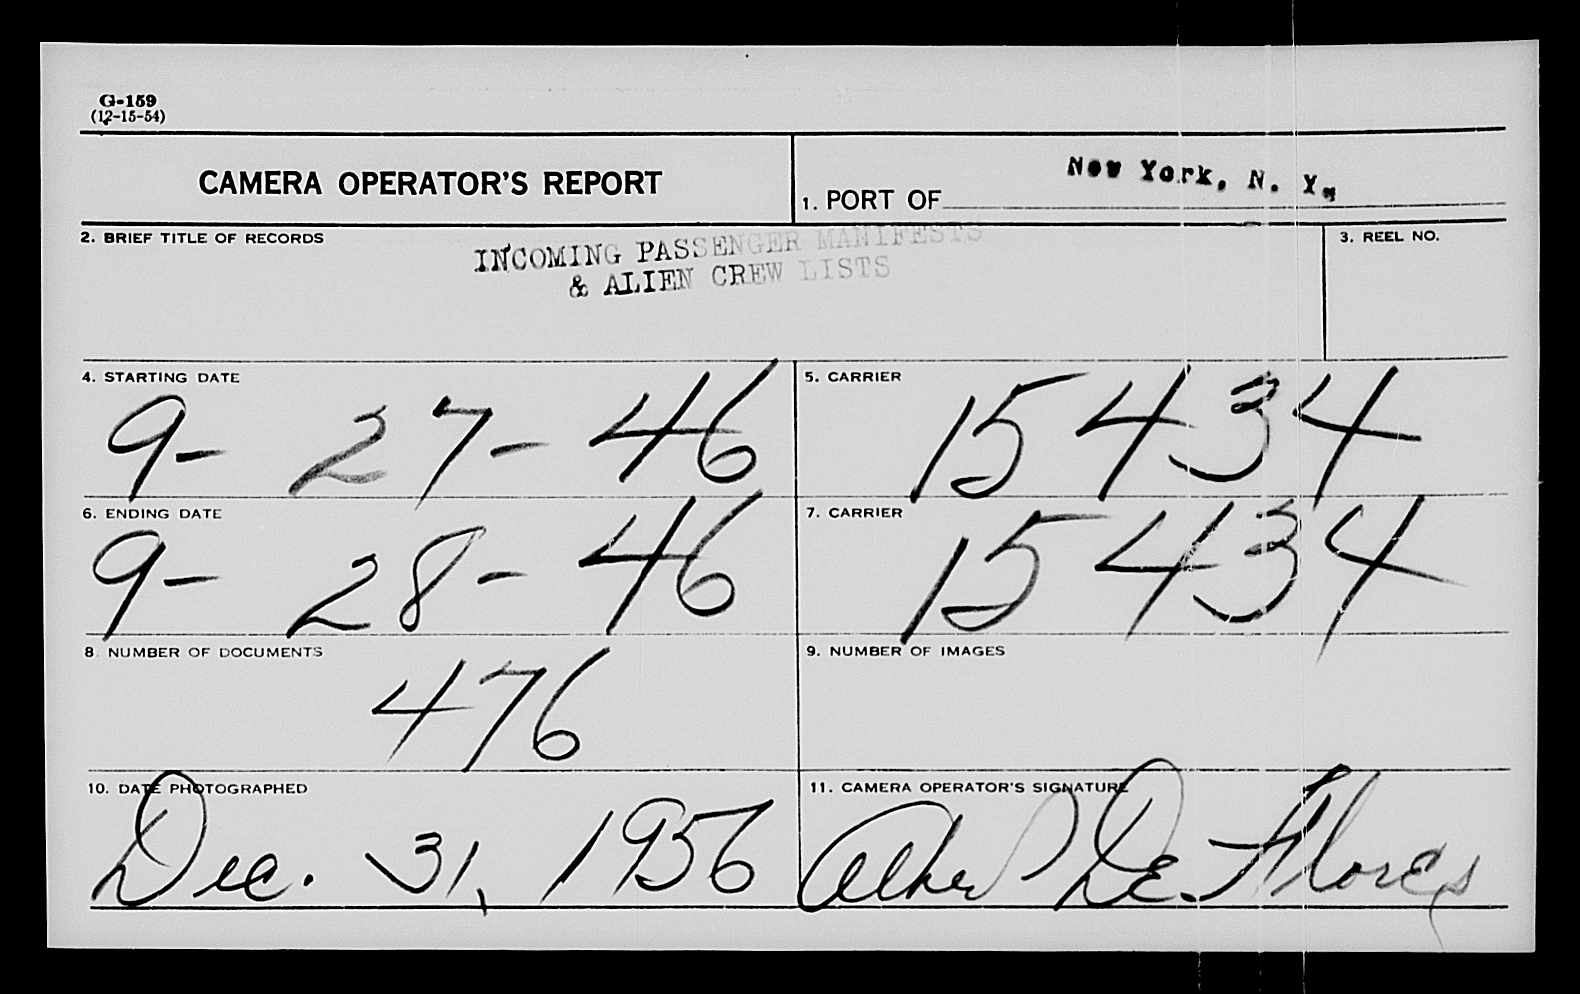 G-159
(12-15-54)
CAMERA OPERATOR'S REPORT
1. PORT OF New York, N. Y.
2. BRIEF TITLE OF RECORDS
INCOMING PASSENGER MANIFESTS
& ALIEN CREW LISTS
3. REEL NO.
4. STARTING DATE
9- 27- 46
5. CARRIER
15434
6. ENDING DATE
9- 28- 46
7. CARRIER
15434
8 NUMBER OF DOCUMENTS
476
9. NUMBER OF IMAGES
10. DATE PHOTOGRAPHED
Dec. 31, 1956
11. CAMERA OPERATOR'S SIGNATURE
De. Flores